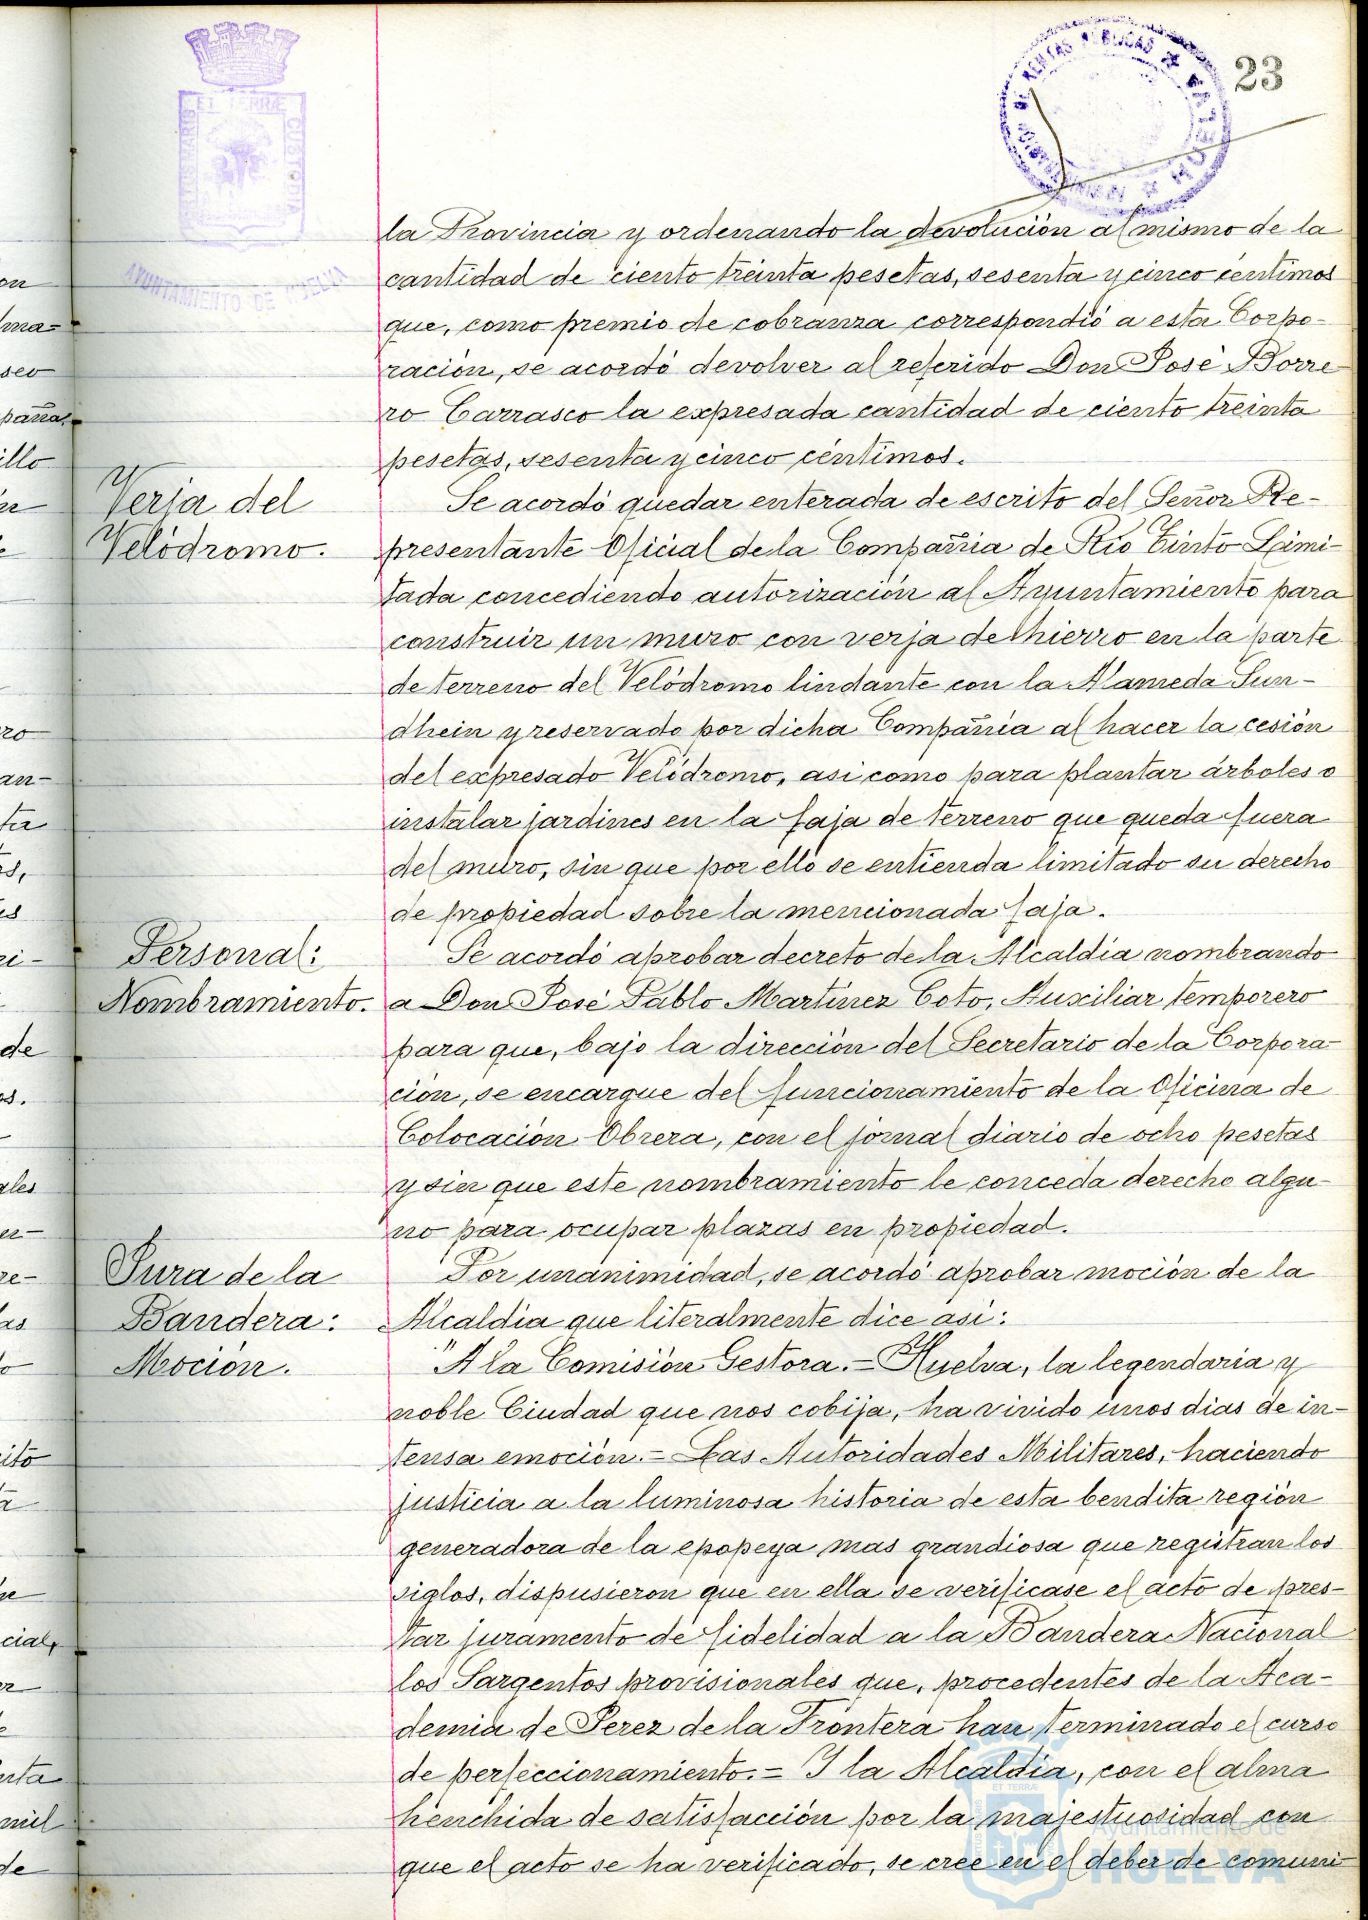 23
ADMINISTRACIÓN DE RENTAS PÚBLICAS
HUELVA
ET TERRÆ
CUSTODIA
AYUNTAMIENTO DE HUELVA
la Provincia y ordenando la devolución al mismo de la
cantidad de ciento treinta pesetas, sesenta y cinco céntimos
que, como premio de cobranza correspondió a esta Corpo-
ración, se acordó devolver al referido Don José Borre-
ro Carrasco la expresada cantidad de ciento treinta
pesetas, sesenta y cinco céntimos.
Verja del
Velódromo.
Se acordó quedar enterada de escrito del Señor Re-
presentante Oficial de la Compañia de Rio Tinto Limi-
tada concediendo autorización al Ayuntamiento para
construir un muro con verja de hierro en la parte
de terreno del Velódromo lindante con la Alameda Sun-
dhein y reservado por dicha Compañía al hacer la cesión
del expresado Velódromo, asi como para plantar árboles o
instalar jardines en la faja de terreno que queda fuera
del muro, sin que por ello se entienda limitado su derecho
de propiedad sobre la mencionada faja.
Personal:
Nombramiento.
Se acordó aprobar decreto de la Alcaldía nombrando
a Don José Pablo Martínez Coto, Auxiliar temporero
para que, bajo la dirección del Secretario de la Corpora-
ción, se encargue del funcionamiento de la Oficina de
Colocación Obrera, con el jornal diario de ocho pesetas
y sin que este nombramiento le conceda derecho algu-
no para ocupar plazas en propiedad.
Jura de la
Bandera:
Moción.
Por unanimidad, se acordó aprobar moción de la
Alcaldía que literalmente dice asi:
"A la Comisión Gestora.= Huelva, la legendaria y
noble Ciudad que nos cobija, ha vivido unos dias de in-
tensa emoción.= Las Autoridades Militares, haciendo
justicia a la luminosa historia de esta bendita región
generadora de la epopeya mas grandiosa que registran los
siglos, dispusieron que en ella se verificase el acto de pres-
tar juramento de fidelidad a la Bandera Nacional
los Sargentos provisionales que, procedentes de la Aca-
demia de Jerez de la Frontera han terminado el curso
de perfeccionamiento.= Y la Alcaldía, con el alma
henchida de satisfacción por la majestuosidad con
que el acto se ha verificado, se cree en el deber de comuni-
Ayuntamiento de
HUELVA